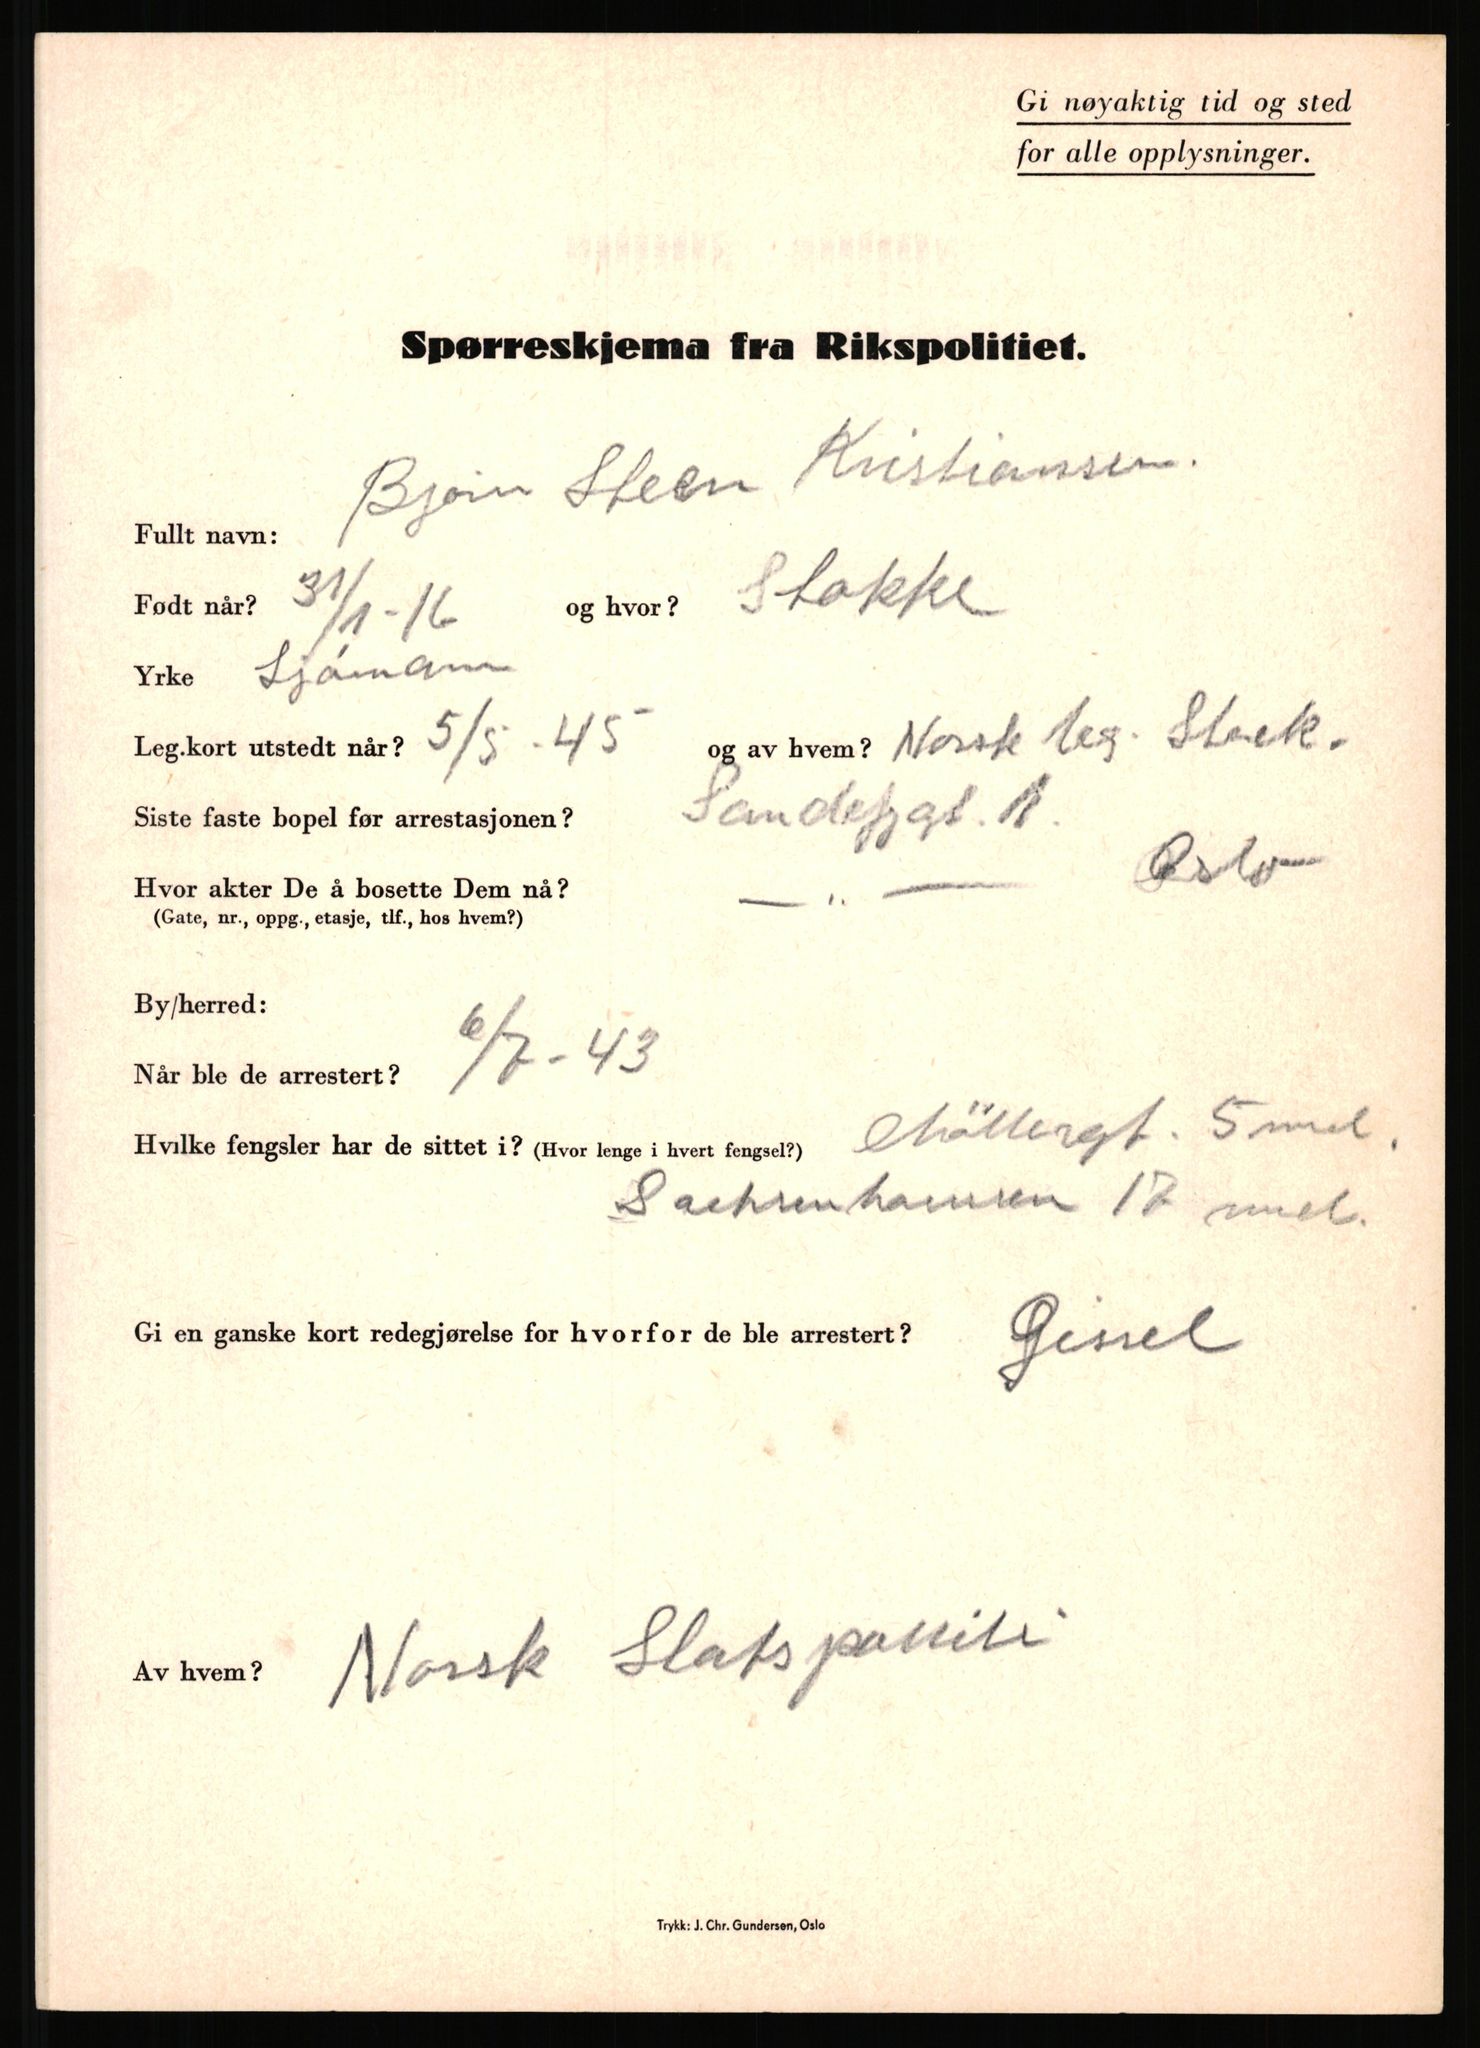 Gi nøyaktig tid og sted
for alle opplysninger.
Spørreskjema fra Rikspolitiet.
Fullt navn: Bjørn Steen Kristiansen.
Født når? 31/1-16 og hvor? Stokke
Yrke Sjömann
Leg.kort utstedt når? 5/5-45 og av hvem? Norsk leg. Stock.
Siste faste bopel før arrestasjonen? Sandefjgt.
Oslo
Hvor akter De å bosette Dem nå? — " —
(Gate, nr., oppg., etasje, tlf., hos hvem?)
By/herred:
Når ble de arrestert? 6/7-43
Hvilke fengsler har de sittet i? (Hvor lenge i hvert fengsel?) Möllergt. 5 mnd.
Sachsenhausen 17 mnd.
Gi en ganske kort redegjørelse for hvorfor de ble arrestert? Gissel
Av hvem? Norsk Statspoliti
Trykk: J. Chr. Gundersen, Oslo